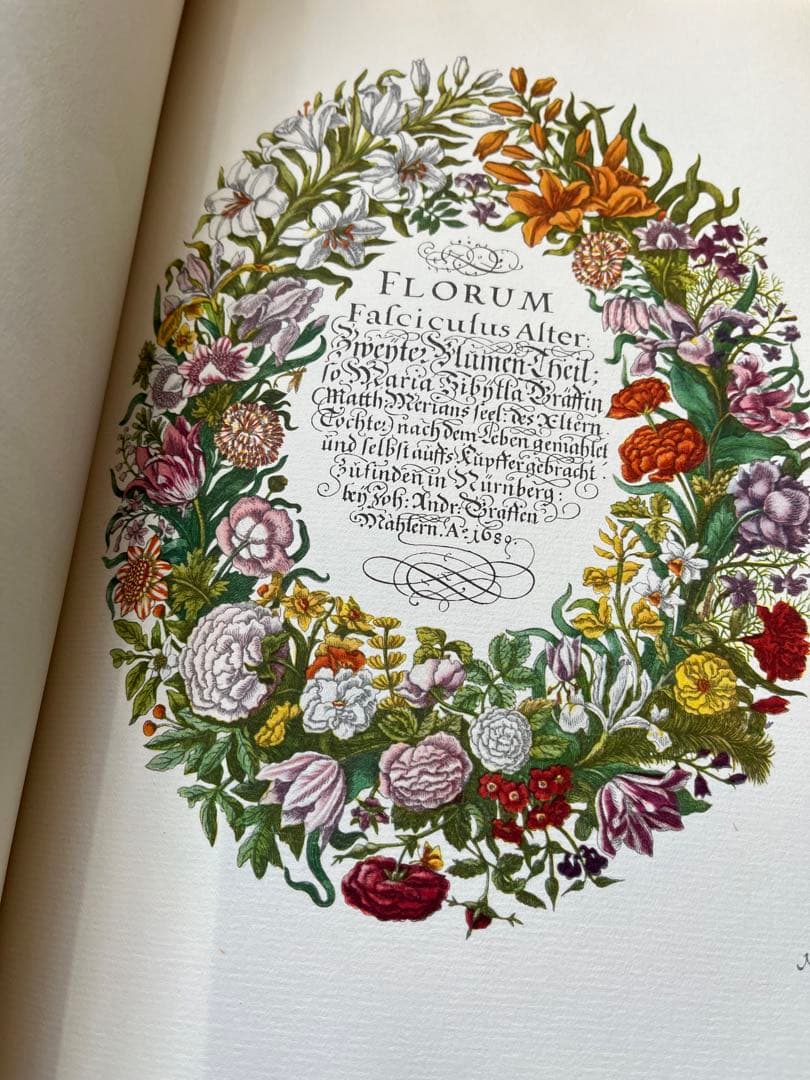 FLORUM
Fasciculus Alter:
Zweyter Blumen-Theil,
so Maria Sibylla Gräffin
Matth: Merians seel: des Eltern
Tochter, nach dem Leben gemahlet
und selbst auffs Kupffer gebracht.
Zu finden in Nürnberg:
bey Joh: Andr: Graffen
Mahlern. A.° 1680.